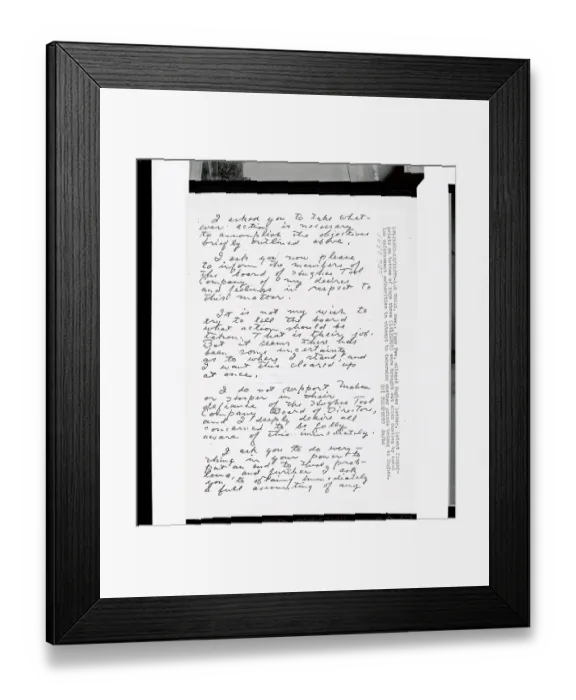 I asked you to take what-
ever action is necessary
to accomplish the objectives
briefly outlined above.
I ask you now please
to inform the members of
the board of Hughes Tool
Company of my desires
and feelings in respect to
this matter.
It is not my wish to
try to tell the board
what action should be
taken. That is their job.
But it seems there has
been some uncertainty
as to where I stand, and
I want this cleared up
at once.
I do not support Maheu
or Hooper in their
defiance of the Hughes Tool
Company Board of Directors,
and I deeply desire all
concerned to be fully
aware of this immediately.
I ask you to do every-
thing in your power to
put an end to these prob-
lems, and further I ask
you to obtain immediately
a full accounting of any